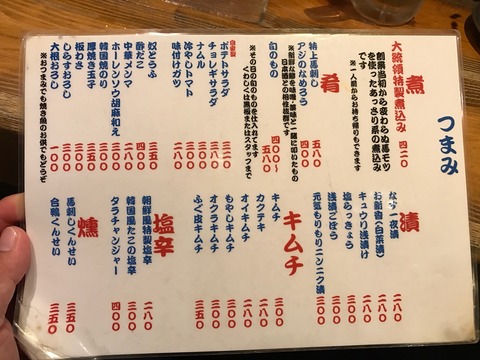 つまみ
煮
大統領特製煮込み 四二〇
創業当初から変わらぬ馬モツ
を使ったあっさり系の煮込み
です
※一人前からお持ち帰りもできます
肴
特上馬刺し 五八〇
アジのなめろう 四〇〇
日本酒との相性抜群です
旬のもの 四八〇〜
五八〇
※その日の旬のものを仕入れてます
くわしくは黒板またはスタッフまで
自家製
ポテトサラダ 三二〇
チョレギサラダ 三五〇
ナムル 三〇〇
冷やしトマト
味付けガツ 二八〇
奴どうふ 二五〇
酢だこ 四五〇
中華メンマ 二八〇
ホーレンソウ胡麻和え
韓国焼のり 二〇〇
厚焼き玉子 三五〇
板わさ 三〇〇
しらすおろし 三五〇
大根おろし 一〇〇
※おつまみでも焼き魚のお供でもどうぞ
漬
なす一夜漬 二八〇
お新香(白菜漬) 二八〇
キュウリ浅漬け 二八〇
塩らっきょう 二八〇
浅漬ごぼう 三〇〇
元気もりもりニンニク漬 三〇〇
キムチ
キムチ 三〇〇
カクテキ 二八〇
オイキムチ 二八〇
もやしキムチ 二八〇
オクラキムチ 三〇〇
ふぐ皮キムチ 三五〇
塩辛
朝鮮風特製塩辛 二八〇
韓国風たこの塩辛 三〇〇
タラチャンジャー 四〇〇
燻
馬刺しくんせい 三五〇
合鴨くんせい 三五〇